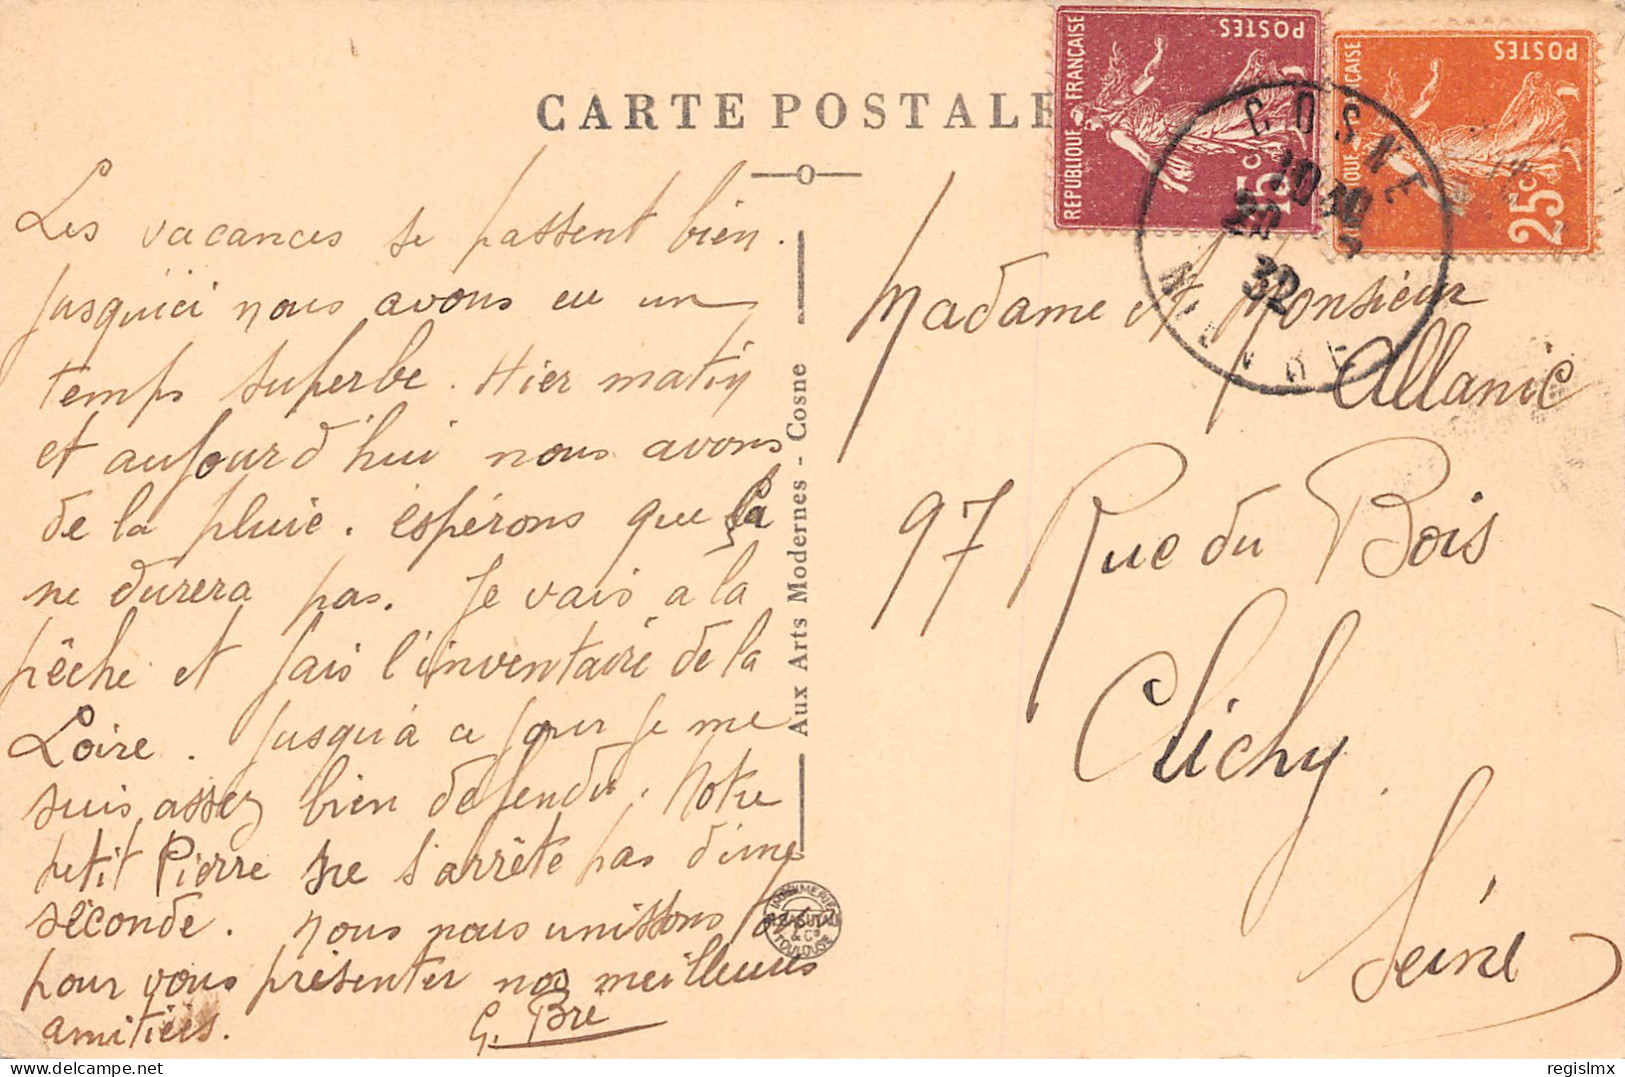 CARTE POSTALE
Les vacances se passent bien.
jusqu'ici nous avons eu un
temps superbe. Hier matin
et aujourd'hui nous avons
de la pluie. espérons que ça
ne durera pas. Je vais a la
pêche et fais l'inventaire de la
Loire. Jusqu'à ce jour je me
suis assez bien défendu. Notre
petit Pierre ne s'arrête pas d'une
seconde. nous nous unissons
pour vous présenter nos meilleures
amitiées.
G. Bré
Aux Arts Modernes - Cosne
IMPRIMERIE
& Cie
TOULOUSE
REPUBLIQUE FRANÇAISE
POSTES
15c
POSTES
25c
COSNE
20
32
NIEVRE
Madame et Monsieur
Allanic
97 Rue du Bois
Clichy
Seine
delcampe.net
regislmx